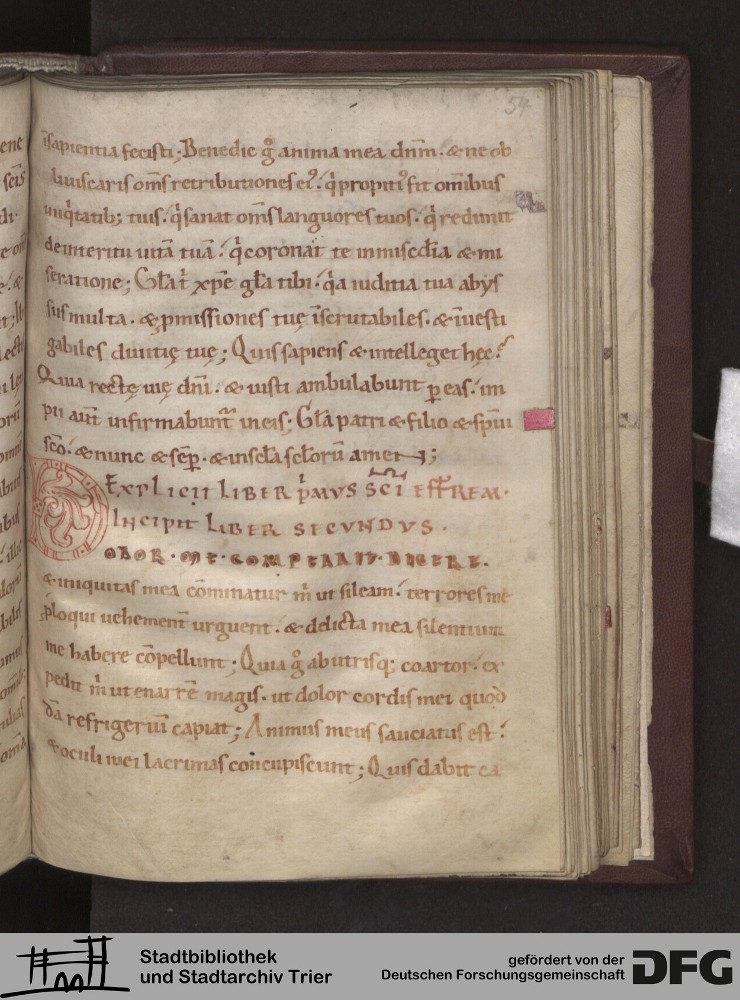 54
īsapientia fecisti; Benedic g̊ anima mea dn̄m. & ne ob
liuiscaris om̄s retributiones ei᾽. q̇ propiti᾽ fit om̄ibus
iniq̇tatib; tuis. q̇ sanat om̄s languores tuos. q̇ redimit
de interitu uitā tuā. q̇ coronat te in misedīa & mi
seratione; Gl̄a t̄ xp̄e gl̄a tibi. q̇a iuditia tua abys
sus multa. & p̱missiones tuę īscrutabiles. & īuesti
gabiles diuitię tuę; Quis sapiens & intelleget hęc?
Quia rectę uię dn̄i. & iusti ambulabunt p̱ eas. im
pii aūt infirmabunt̄ in eis; Gl̄a patri & filio & sp̄ui
sc̄o. & nunc & sēp̱. & in scl̄a scl̄orū amen;
EXPLICIT LIBER p̄MVS SC̄I EFFREM.
INCIPIT LIBER SECVNDVS.
OLOR. ME. COMPELLIT. DICERE.
& iniquitas mea cōminatur m̄ ut sileam. terrores me
p̱loqui uehement̄ urguent. & delicta mea silentium
me habere cōpellunt; Quia g̊ ab utrisq; coartor. ex
pedit m̄ ut enarrē magis. ut dolor cordis mei quod
dā refrigeriū capiat; Animus meus sauciatus est.
& oculi mei lacrimas concupiscunt; Quis dabit ca
Stadtbibliothek
und Stadtarchiv Trier
gefördert von der
Deutschen Forschungsgemeinschaft
DFG